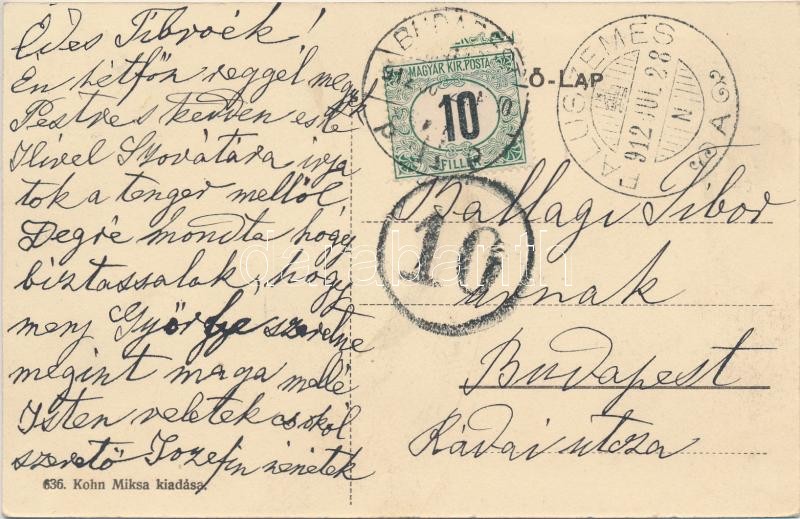 Édes Tibroék!
Én hétfőn reggel megyek
Pestre s kedden este
Ilivel Szovátára irja
tok a tenger mellől
Degré mondta hogy
biztassalak, hogy
menj Győrbe szeretne
megint maga mellé
Isten veletek csókol
szerető Jozefin nénétek
636. Kohn Miksa kiadása.
BUDAPEST
MAGYAR KIR. POSTA
10
FILLÉR
Ő-LAP
FALUSZEMES
912 JUL 28
N
A
10
Ballagi Tibor
urnak
Budapest
Ráday utcza
darabanth